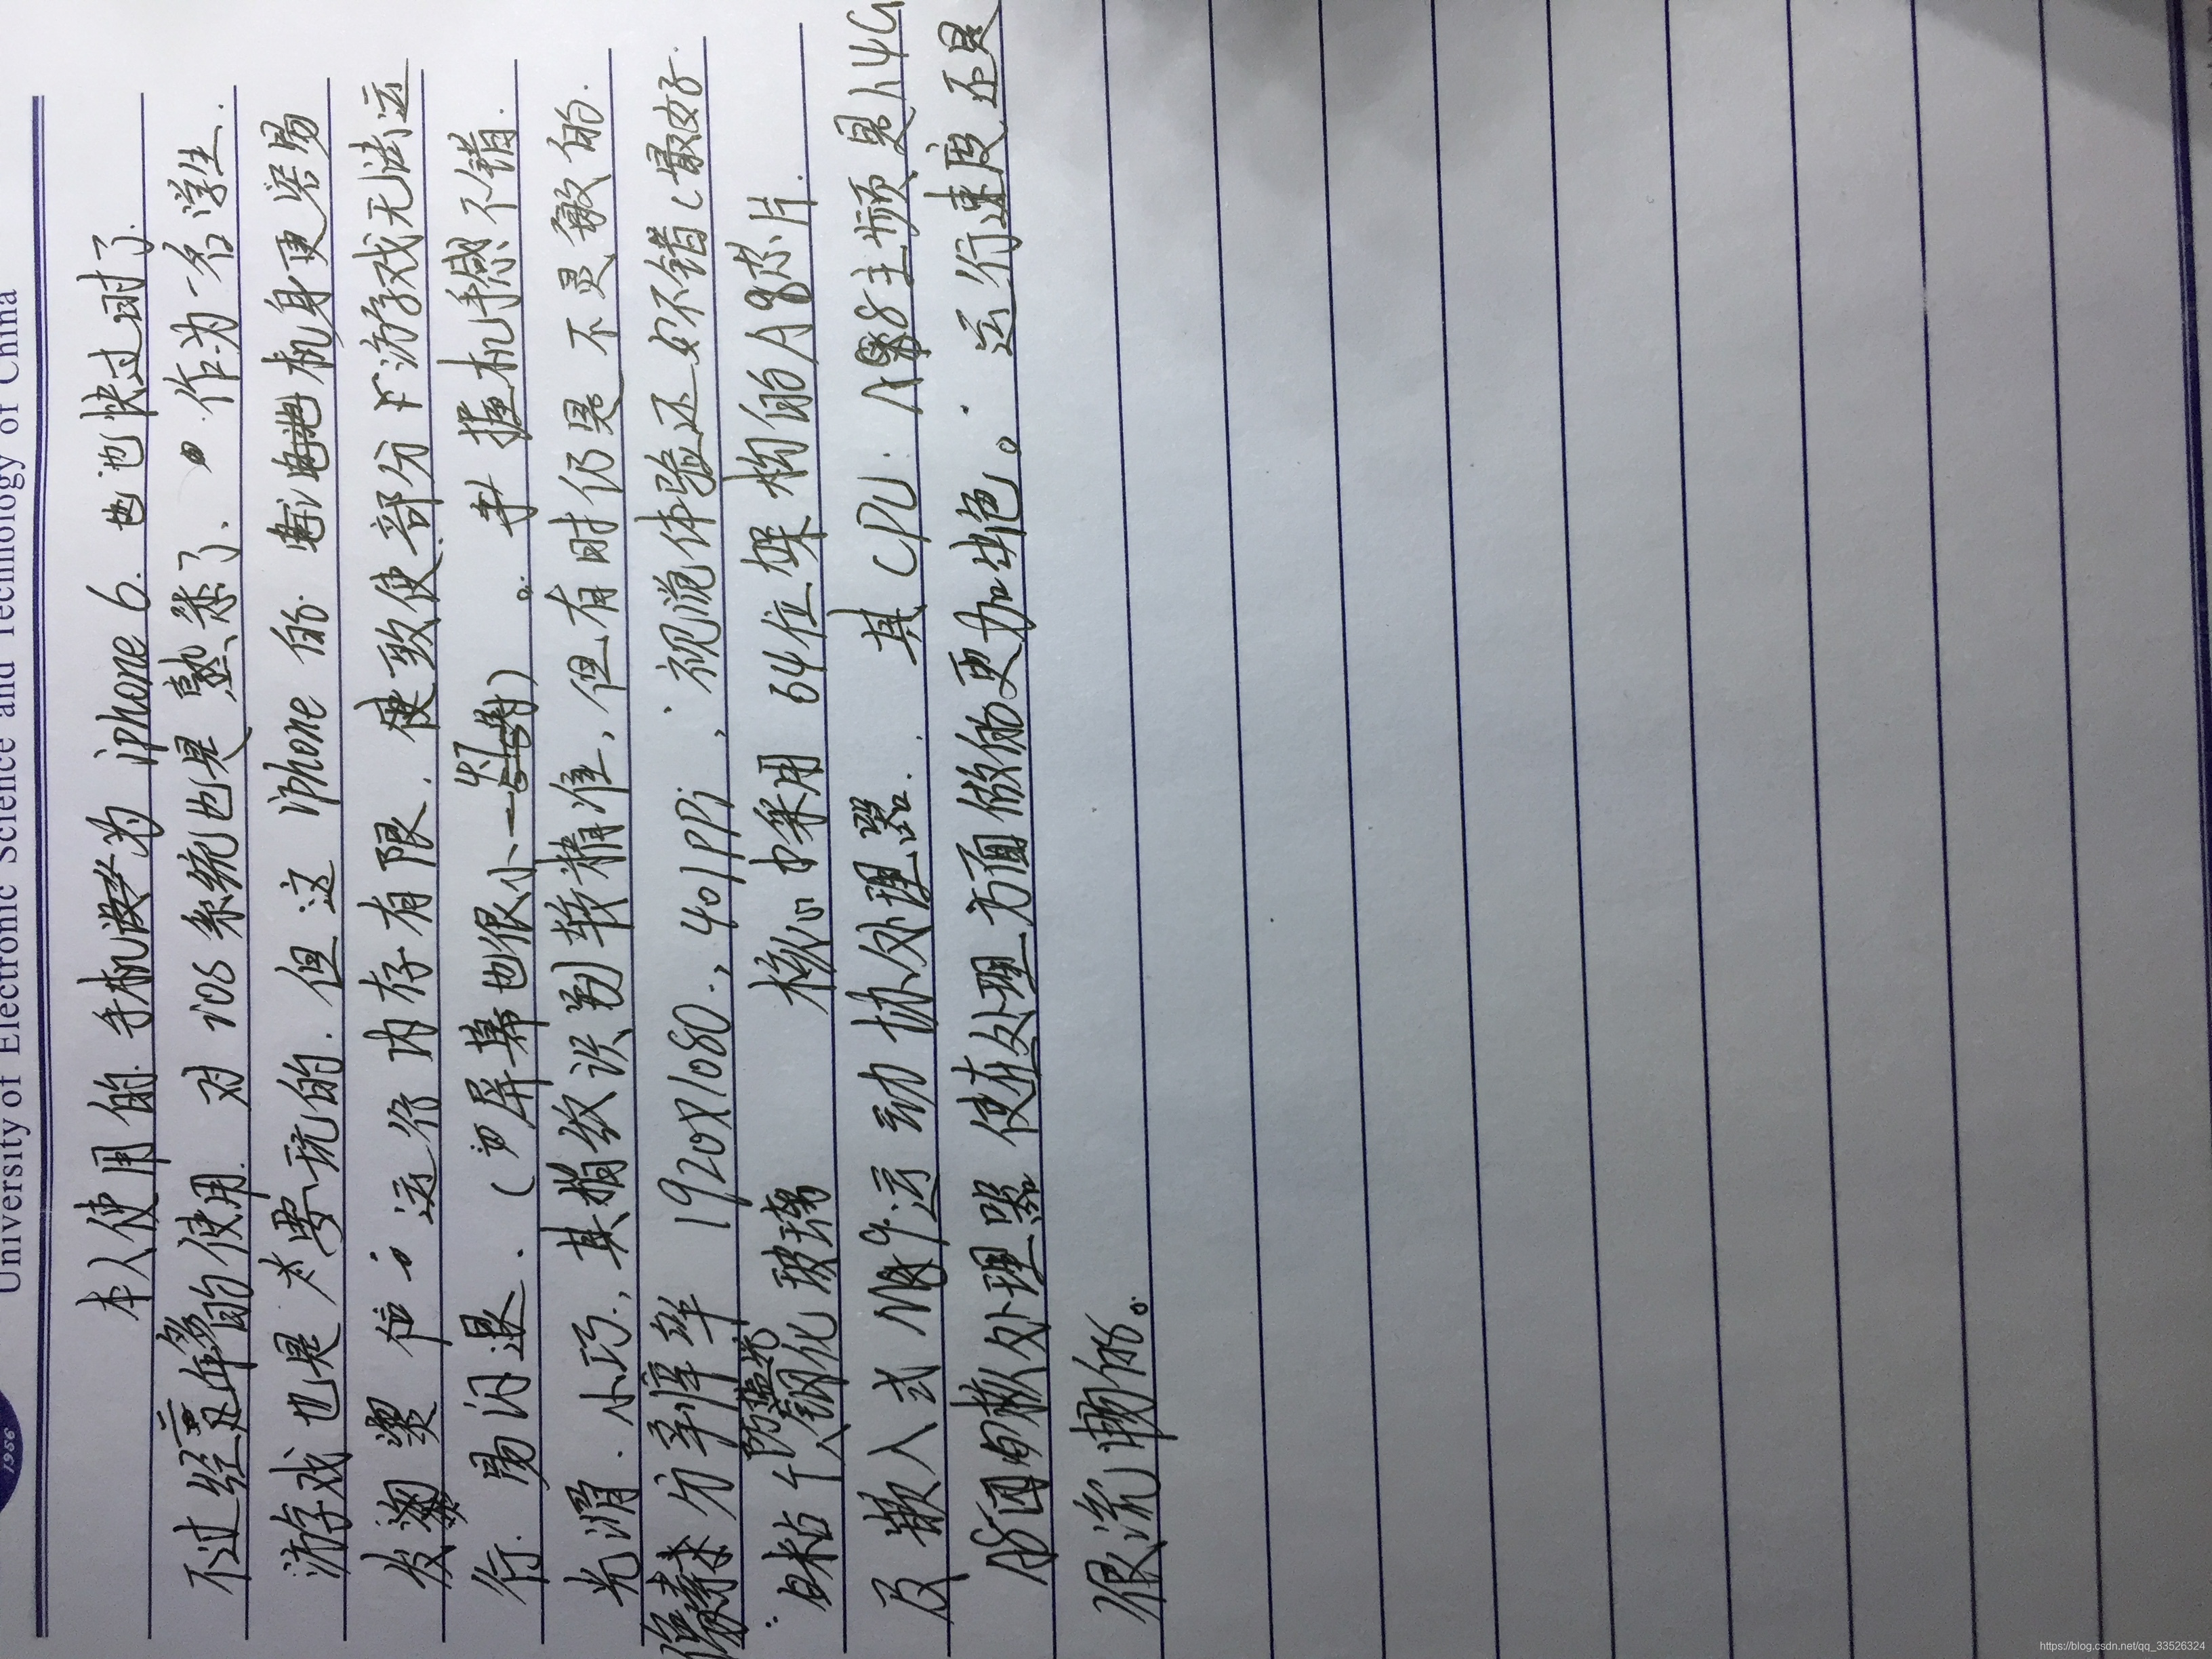 University of Electronic Science and Technology of China
1956
本人使用的手机为 iphone 6. 也快过时了.
不过经年的使用. 对 ios 系统也是熟悉了、作为一名学生.
游戏也是要玩的. 但这 iphone 的 机身更容易
发烫 运行内存有限. 使部分游戏无法运
行. 易闪退. (屏幕也很小) 。手握机手感不错.
光滑. 小巧., 其指纹识别较精准, 但有时仍是不灵敏的.
分辨率 1920X1080., 401PPi, 视觉体验还不错(最好
自粘个钢化玻璃 核心中采用 64位架构的A8芯片.
防蓝光
及嵌入式 M8 运动协处理器. 其 CPU. A8主频是1.4G
协处理器 使在处理方面做的更加出色。运行速度还是
很流畅的。
https://blog.csdn.net/qq_33526324